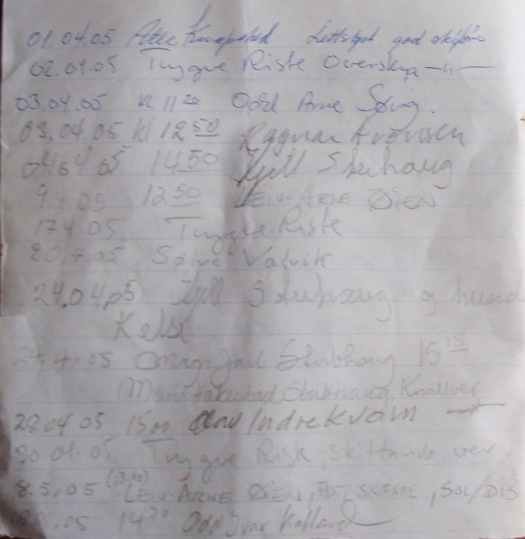 01.04.05 Atle Lettskyet god skiføre
02.04.05 Trygve Riste Overskya —"—
03.04.05 kl 11 20 Odd Arne
03.04.05 kl 12 50 Ragnar Aronsen
04.04.05 14 50 Kjell Stubhaug
9 4 05 12 50 LEIV ARNE ØIEN
17 4 05 Trygve Riste
20.4.05 Sølvi Valvik
24.04.05 Kjell Stubhaug og hund
Kelsi
05 Stubhaug 15 15
Stubhaug. Knallver
28.04 05 15 00 Indrekvam
30.04.05 Trygve Riste, skiftande ver
8.5.05 (13.00) LEIV ARNE ØIEN, SKIFØRE, SOL/DIS
.05 14 30 Odd Ivar